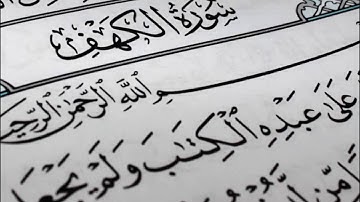 سُورَةُ الْكَهْفِ
بِسْمِ اللَّهِ الرَّحْمَٰنِ الرَّحِيمِ
عَلَىٰ عَبْدِهِ الْكِتَٰبَ وَلَمْ يَجْعَل